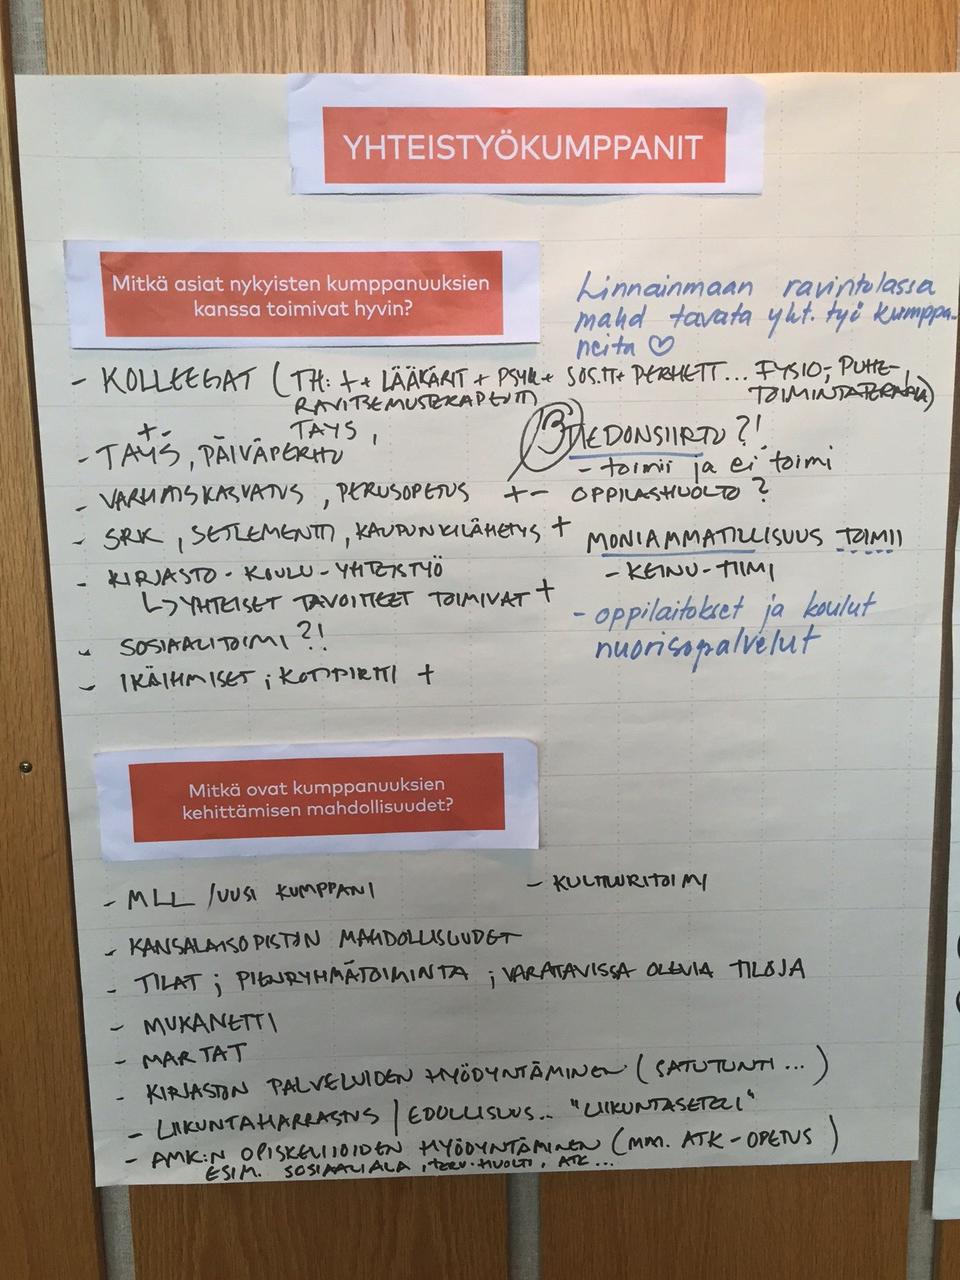 YHTEISTYÖKUMPPANIT
Mitkä asiat nykyisten kumppanuuksien
kanssa toimivat hyvin?
Linnainmaan ravintolassa
mahd tavata yht. työ kumppa-
neita ♡
- KOLLEEGAT (TH: ++ LÄÄKÄRIT + PSYK+ SOS.TT+ PERHETT... FYSIO-, PUHE-,
RAVITSEMUSTERAPEUTTI TOIMINTATERAPIA)
TAYS,
+-
- TAYS, PÄIVÄPERHO
TIEDONSIIRTO?!
- toimii ja ei toimi
- VARHAISKASVATUS, PERUSOPETUS +- OPPILASHUOLTO?
- SRK, SETLEMENTTI, KAUPUNKILÄHETYS +
MONIAMMATILLISUUS TOIMII
- KEINU-TIIMI
- KIRJASTO-KOULU-YHTEISTYÖ
↳ YHTEISET TAVOITTEET TOIMIVAT +
- oppilaitokset ja koulut
nuorisopalvelut
- SOSIAALITOIMI?!
- IKÄIHMISET; KOTIPIRTTI +
Mitkä ovat kumppanuuksien
kehittämisen mahdollisuudet?
- MLL /UUSI KUMPPANI
- KULTTUURITOIMI
- KANSALAISOPISTON MAHDOLLISUUDET
- TILAT; PIENRYHMÄTOIMINTA; VARATTAVISSA OLEVIA TILOJA
- MUKANETTI
- MARTAT
- KIRJASTON PALVELUIDEN HYÖDYNTÄMINEN (SATUTUNTI...)
- LIIKUNTAHARRASTUS / EDULLISUUS... "LIIKUNTASETELI"
- AMK:N OPISKELIJOIDEN HYÖDYNTÄMINEN (MM. ATK-OPETUS)
ESIM. SOSIAALIALA, TERV.HUOLTO, ATK...